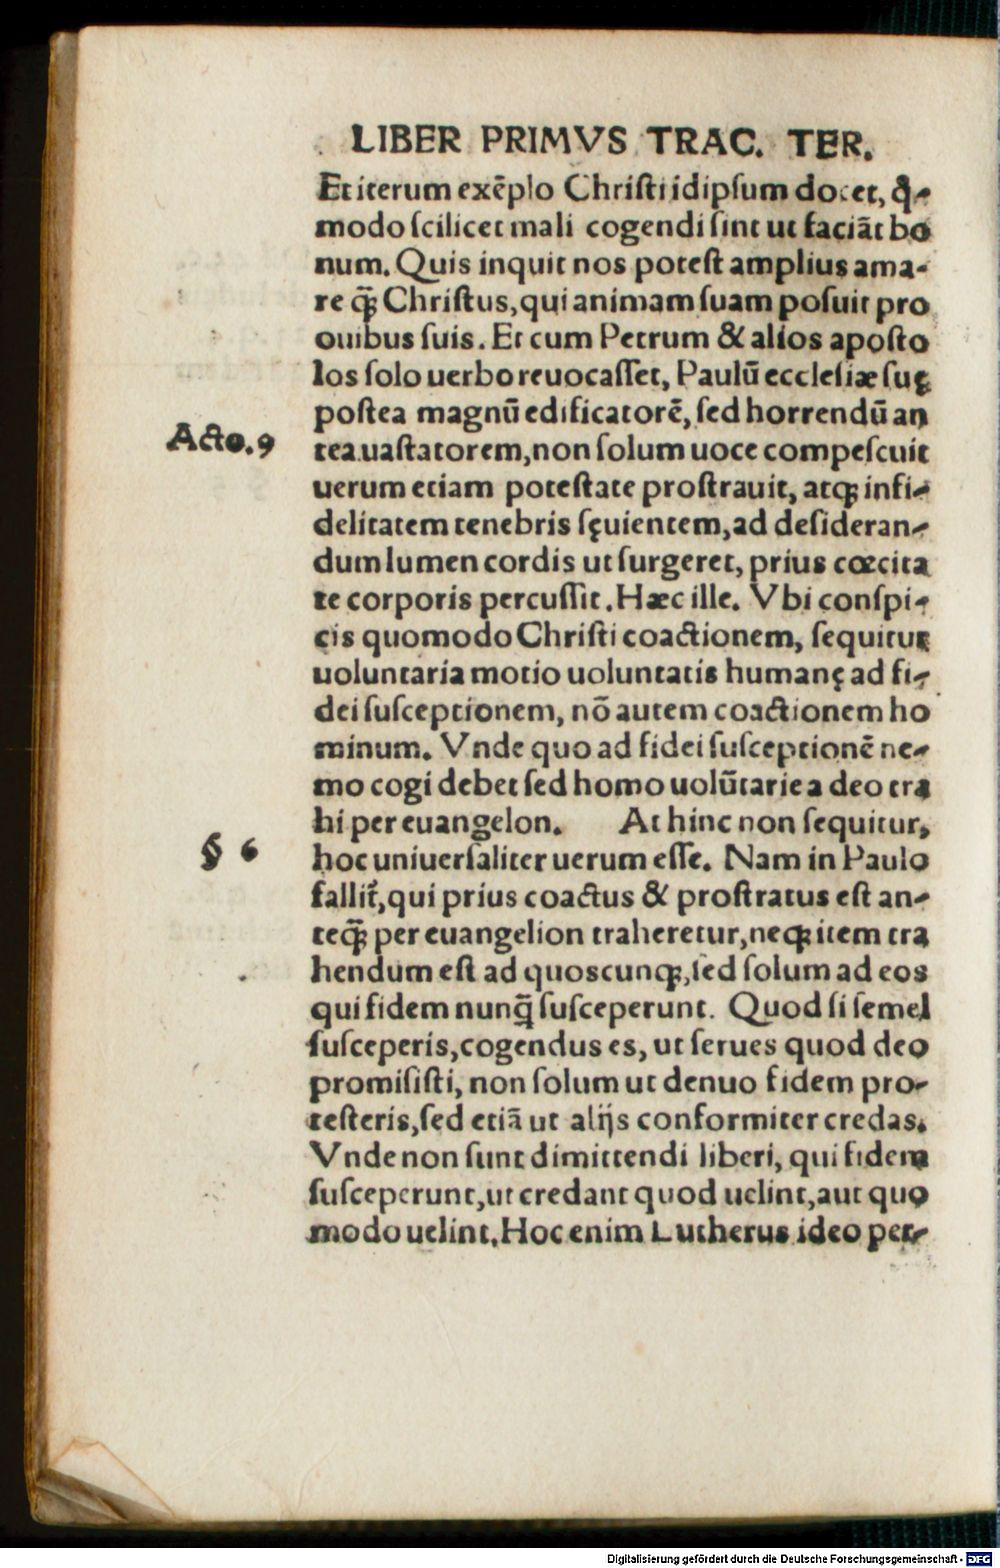 LIBER PRIMVS TRAC. TER.
Et iterum exēplo Chriſti idipſum docet, q̄-
modo ſcilicet mali cogendi ſint ut faciāt bo
num. Quis inquit nos poteſt amplius ama-
re q̄ꝫ Chriſtus, qui animam ſuam poſuit pro
ouibus ſuis. Et cum Petrum & alios apoſto
los ſolo uerbo reuocaſſet, Paulū eccleſiæ ſuę
poſtea magnū edificatorē, ſed horrendū an
Acto. 9
tea uaſtatorem, non ſolum uoce compeſcuit
uerum etiam poteſtate proſtrauit, atqꝫ infi-
delitatem tenebris ſęuientem, ad deſideran-
dum lumen cordis ut ſurgeret, prius cœcita
te corporis percuſſit. Hæc ille. Vbi conſpi-
cis quomodo Chriſti coactionem, ſequitur
uoluntaria motio uoluntatis humanę ad fi-
dei ſuſceptionem, nō autem coactionem ho
minum. Vnde quo ad fidei ſuſceptionē ne-
mo cogi debet ſed homo uolūtarie a deo tra
hi per euangelon. At hinc non ſequitur,
§ 6
hoc uniuerſaliter uerum eſſe. Nam in Paulo
fallit᷑, qui prius coactus & proſtratus eſt an-
teq̄ꝫ per euangelion traheretur, neqꝫ item tra
hendum eſt ad quoscunqꝫ, ſed ſolum ad eos
qui fidem nunq̄ꝫ ſuſceperunt. Quod ſi ſemel
ſuſceperis, cogendus es, ut ſerues quod deo
promiſiſti, non ſolum ut denuo fidem pro-
teſteris, ſed etiā ut alijs conformiter credas.
Vnde non ſunt dimittendi liberi, qui fidem
ſuſceperunt, ut credant quod uelint, aut quo
modo uelint. Hoc enim Lutherus ideo per-
Digitalisierung gefördert durch die Deutsche Forschungsgemeinschaft - DFG